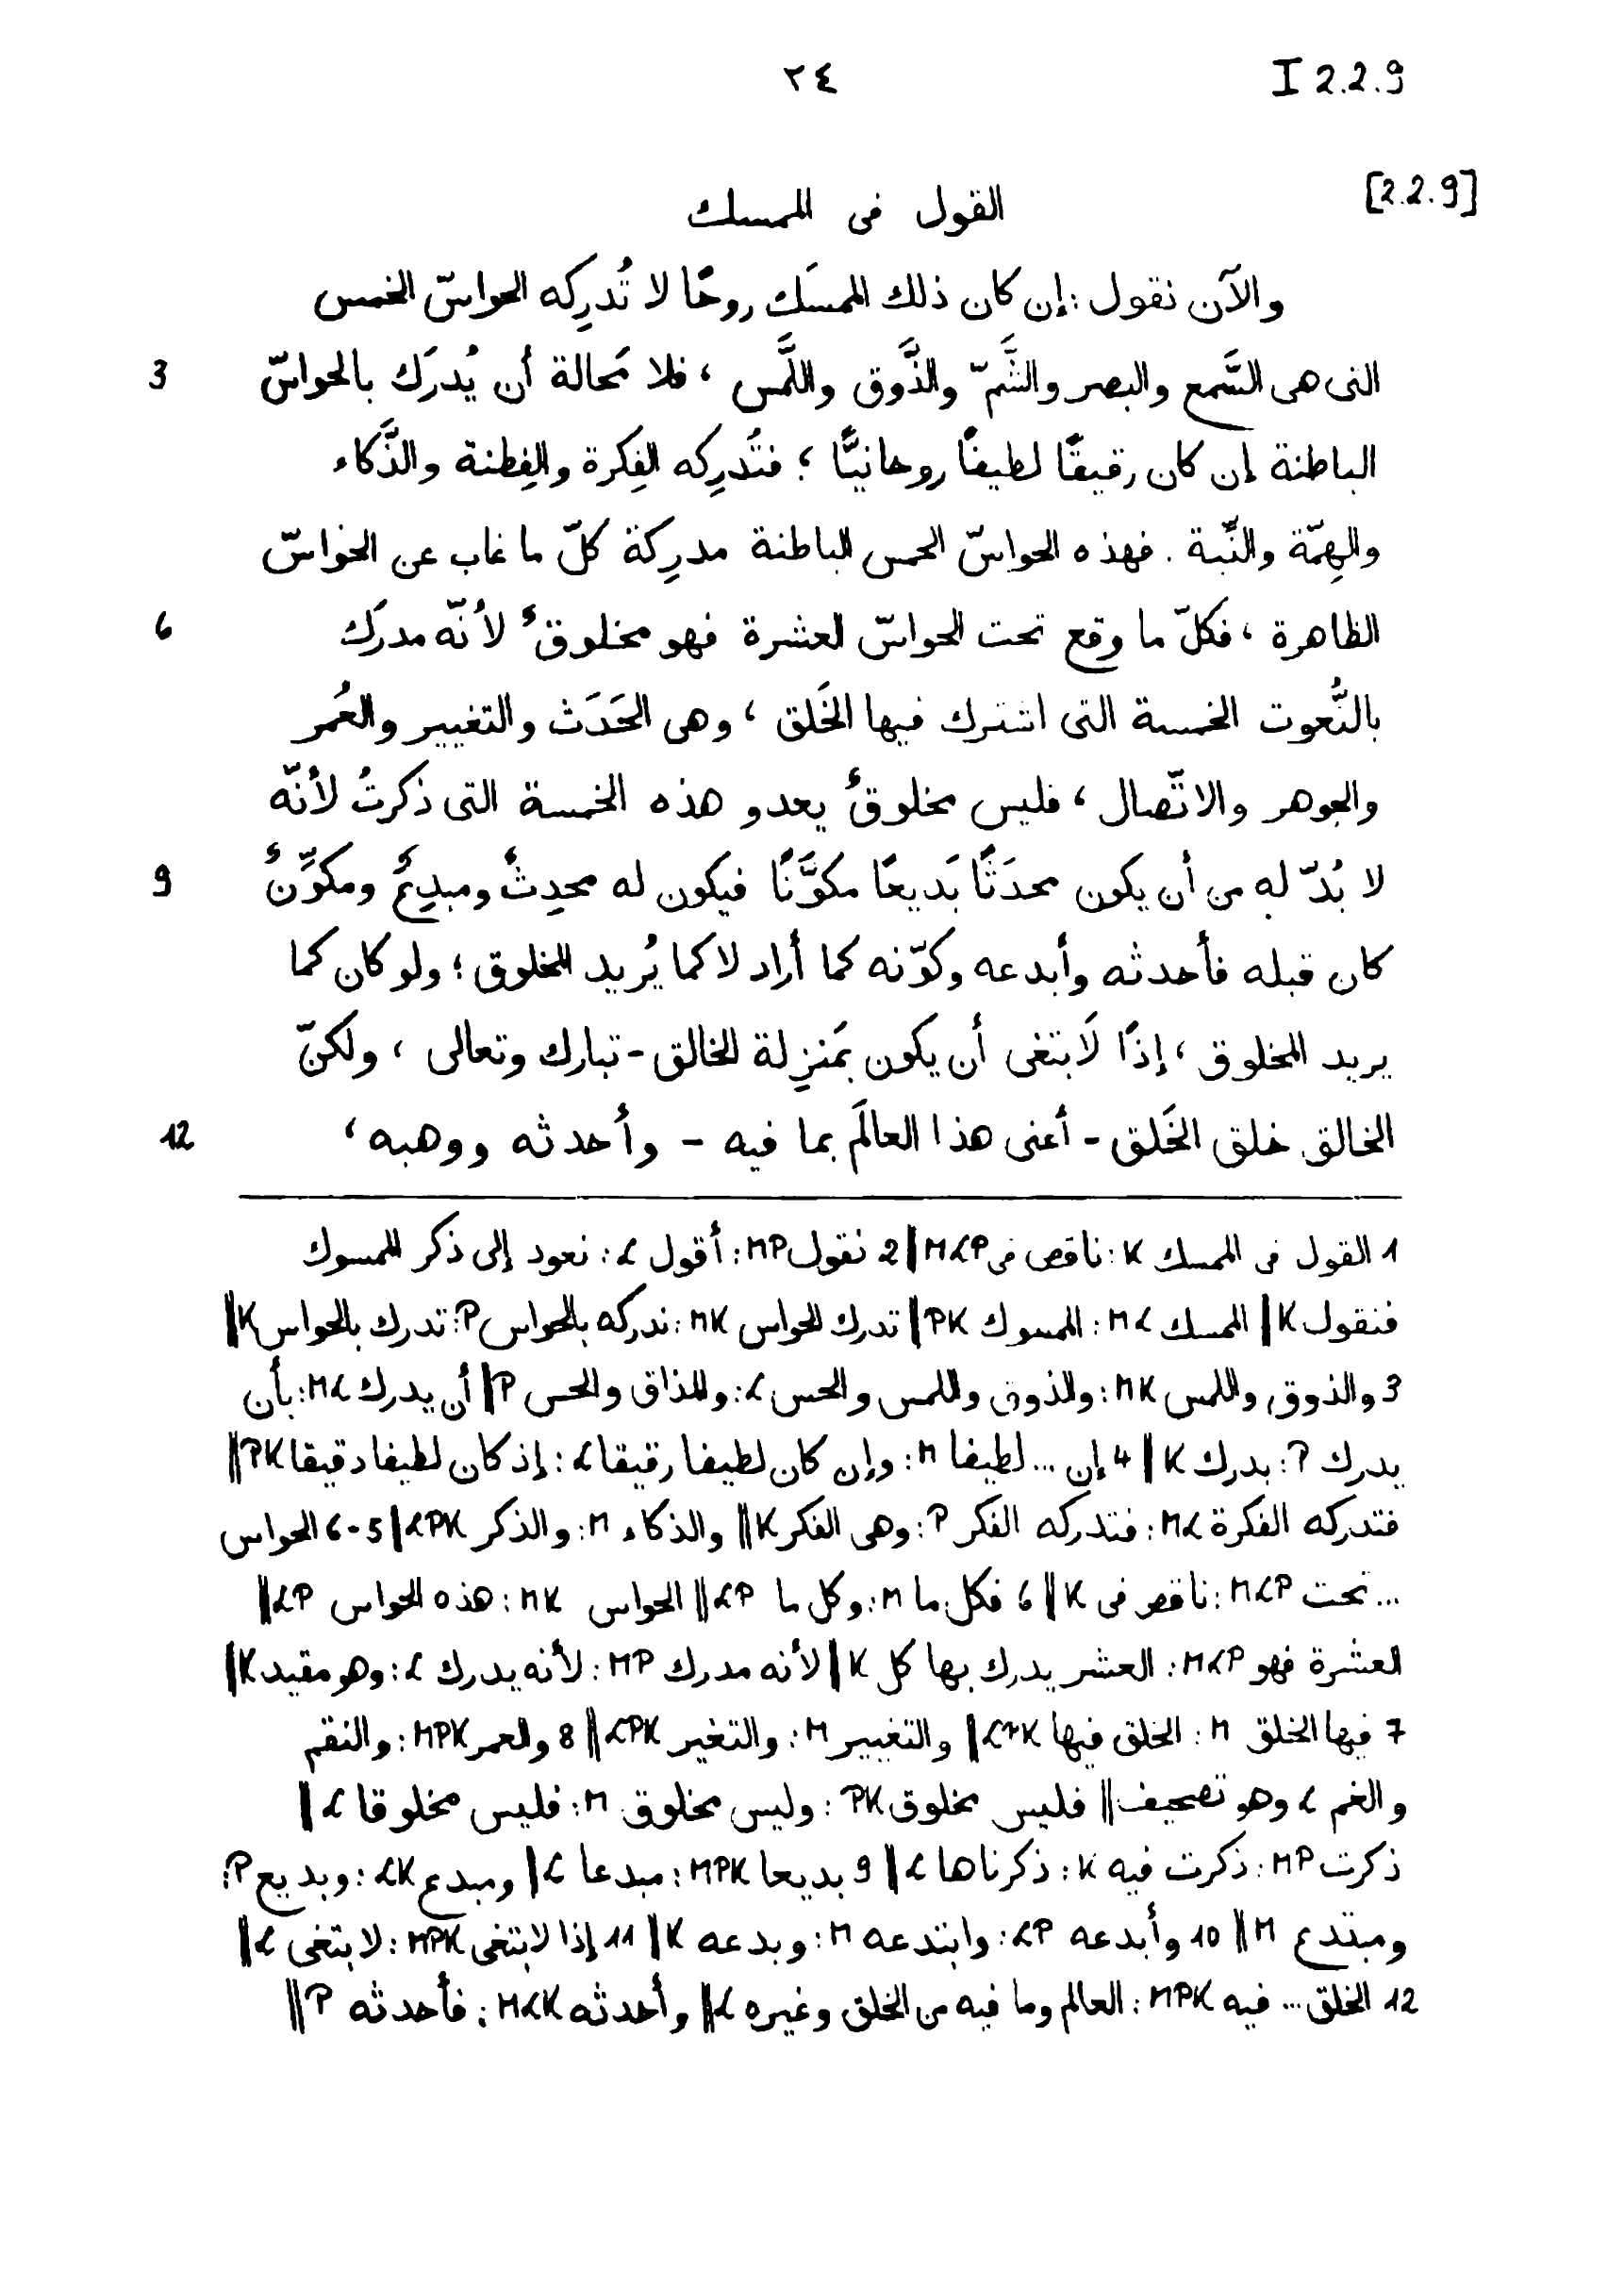 I 2.2.9 ٢٤
[2.2.9] القول فى الممسك
والآن نقول : إن كان ذلك الممسَك روحًا لا تُدرِكه الحواسّ الخمس
3 التى هى السَّمع والبصر والشَّمّ والذَّوق واللَّمس ، فلا مَحالة أن يُدرَك بالحواسّ
الباطنة إن كان رقيقًا لطيفًا روحانيًّا ؛ فتُدرِكه الفِكرة والفِطنة والذَّكاء
والهِمّة والنِّية . فهذه الحواسّ الخمس الباطنة مدرِكة كلّ ما غاب عن الحواسّ
6 الظاهرة ، فكلّ ما وقع تحت الحواسّ العشرة فهو مخلوقٌ لأنّه مدرَك
بالنُّعوت الخمسة التى اشترك فيها الخَلق ، وهى الحَدَث والتغيير والعُمر
والجوهر والاتّصال ، فليس مخلوقٌ يعدو هذه الخمسة التى ذكرتُ لأنّه
9 لا بُدّ له من أن يكون محدَثًا بَديعًا مكوَّنًا فيكون له محدِثٌ ومبدِعٌ ومكوِّنٌ
كان قبله فأحدثه وأبدعه وكوّنه كما أراد لا كما يُريد المخلوق ؛ ولو كان كما
يريد المخلوق ، إذًا لَابتغى أن يكون بمَنزِلة الخالق - تبارك وتعالى ، ولكنّ
12 الخالق خلق الخَلق - أعنى هذا العالَم بما فيه - وأحدثه ووهبه ،
1 القول فى الممسك K : ناقص فى MLP || 2 نقول MP : أقول L : نعود إلى ذكر الممسوك
فنقول K || الممسك ML : الممسوك PK || تدرك الحواس MK : ندركه بالحواس P : تدرك بالحواس K ||
3 والذوق واللمس MK : والذوق واللمس والحس L : والمذاق والحس P || أن يدرك ML : بأن
يدرك P : بدرك K || 4 إن ... لطيفا M : وإن كان لطيفا رقيقا L : إذ كان لطيفا دقيقا PK ||
فتدركه الفكرة ML : فتدركه الفكر P : وهى الفكر K || والذكاء M : والذكر LPK || 5-6 الحواس
... تحت MLP : ناقص فى K || 6 فكل ما M : وكل ما LP || الحواس MK : هذه الحواس LP ||
العشرة فهو MLP : العشر يدرك بها كل K || لأنه مدرك MP : لأنه يدرك L : وهو مقيد K ||
7 فيها الخلق M : الخلق فيها LPK || والتغيير M : والتغير LPK || 8 والعمر MPK : والنقم
والغم L وهو تصحيف || فليس مخلوق PK : وليس مخلوق M : فليس مخلوقا L ||
ذكرت MP : ذكرت فيه K : ذكرناها L || 9 بديعا MPK : مبدعا L || ومبدع LK : وبديع P :
ومبتدع M || 10 وأبدعه LP : وابتدعه M : وبدعه K || 11 إذا لابتغى MPK : لابتغى L ||
12 الخلق ... فيه MPK : العالم وما فيه من الخلق وغيره L || وأحدثه MLK : فأحدثه P ||